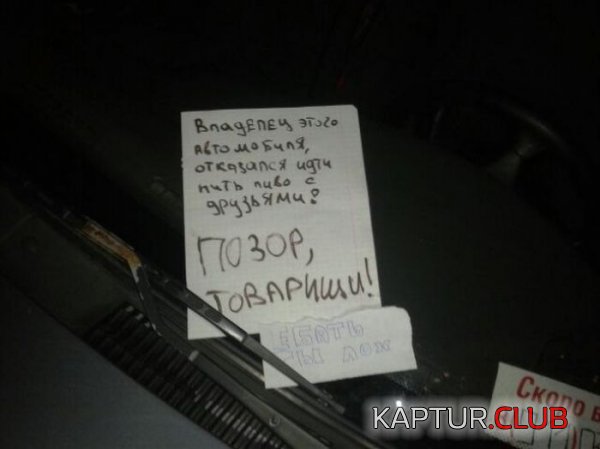 Владелец этого
автомобиля,
отказался идти
пить пиво с
друзьями!
ПОЗОР,
ТОВАРИЩИ!
ЕБАТЬ
ТЫ ЛОХ
Скоро б
KAPTUR.CLUB